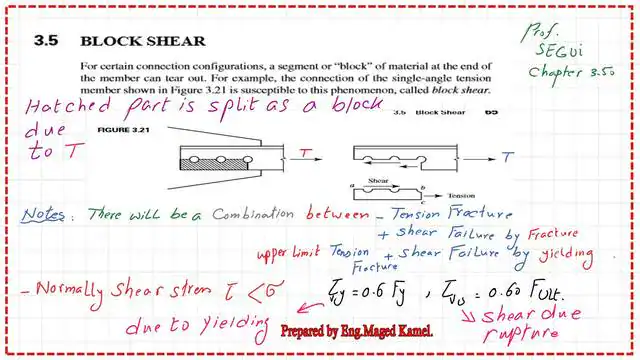 3.5 BLOCK SHEAR
Prof.
SEGUI
Chapter 3.50
For certain connection configurations, a segment or “block” of material at the end of
the member can tear out. For example, the connection of the single-angle tension
member shown in Figure 3.21 is susceptible to this phenomenon, called block shear.
Hatched part is split as a block
3.5 Block Shear
due
to T
FIGURE 3.21
T
T
Shear
a
b
c
Tension
Notes: There will be a Combination between - Tension Fracture
+ shear Failure by Fracture
upper limit Tension + shear Failure by yielding
Fracture
- Normally Shear stress τ < σ
τy = 0.6 Fy , τu = 0.60 Fult.
due to yielding
shear due
rupture
Prepared by Eng.Maged Kamel.